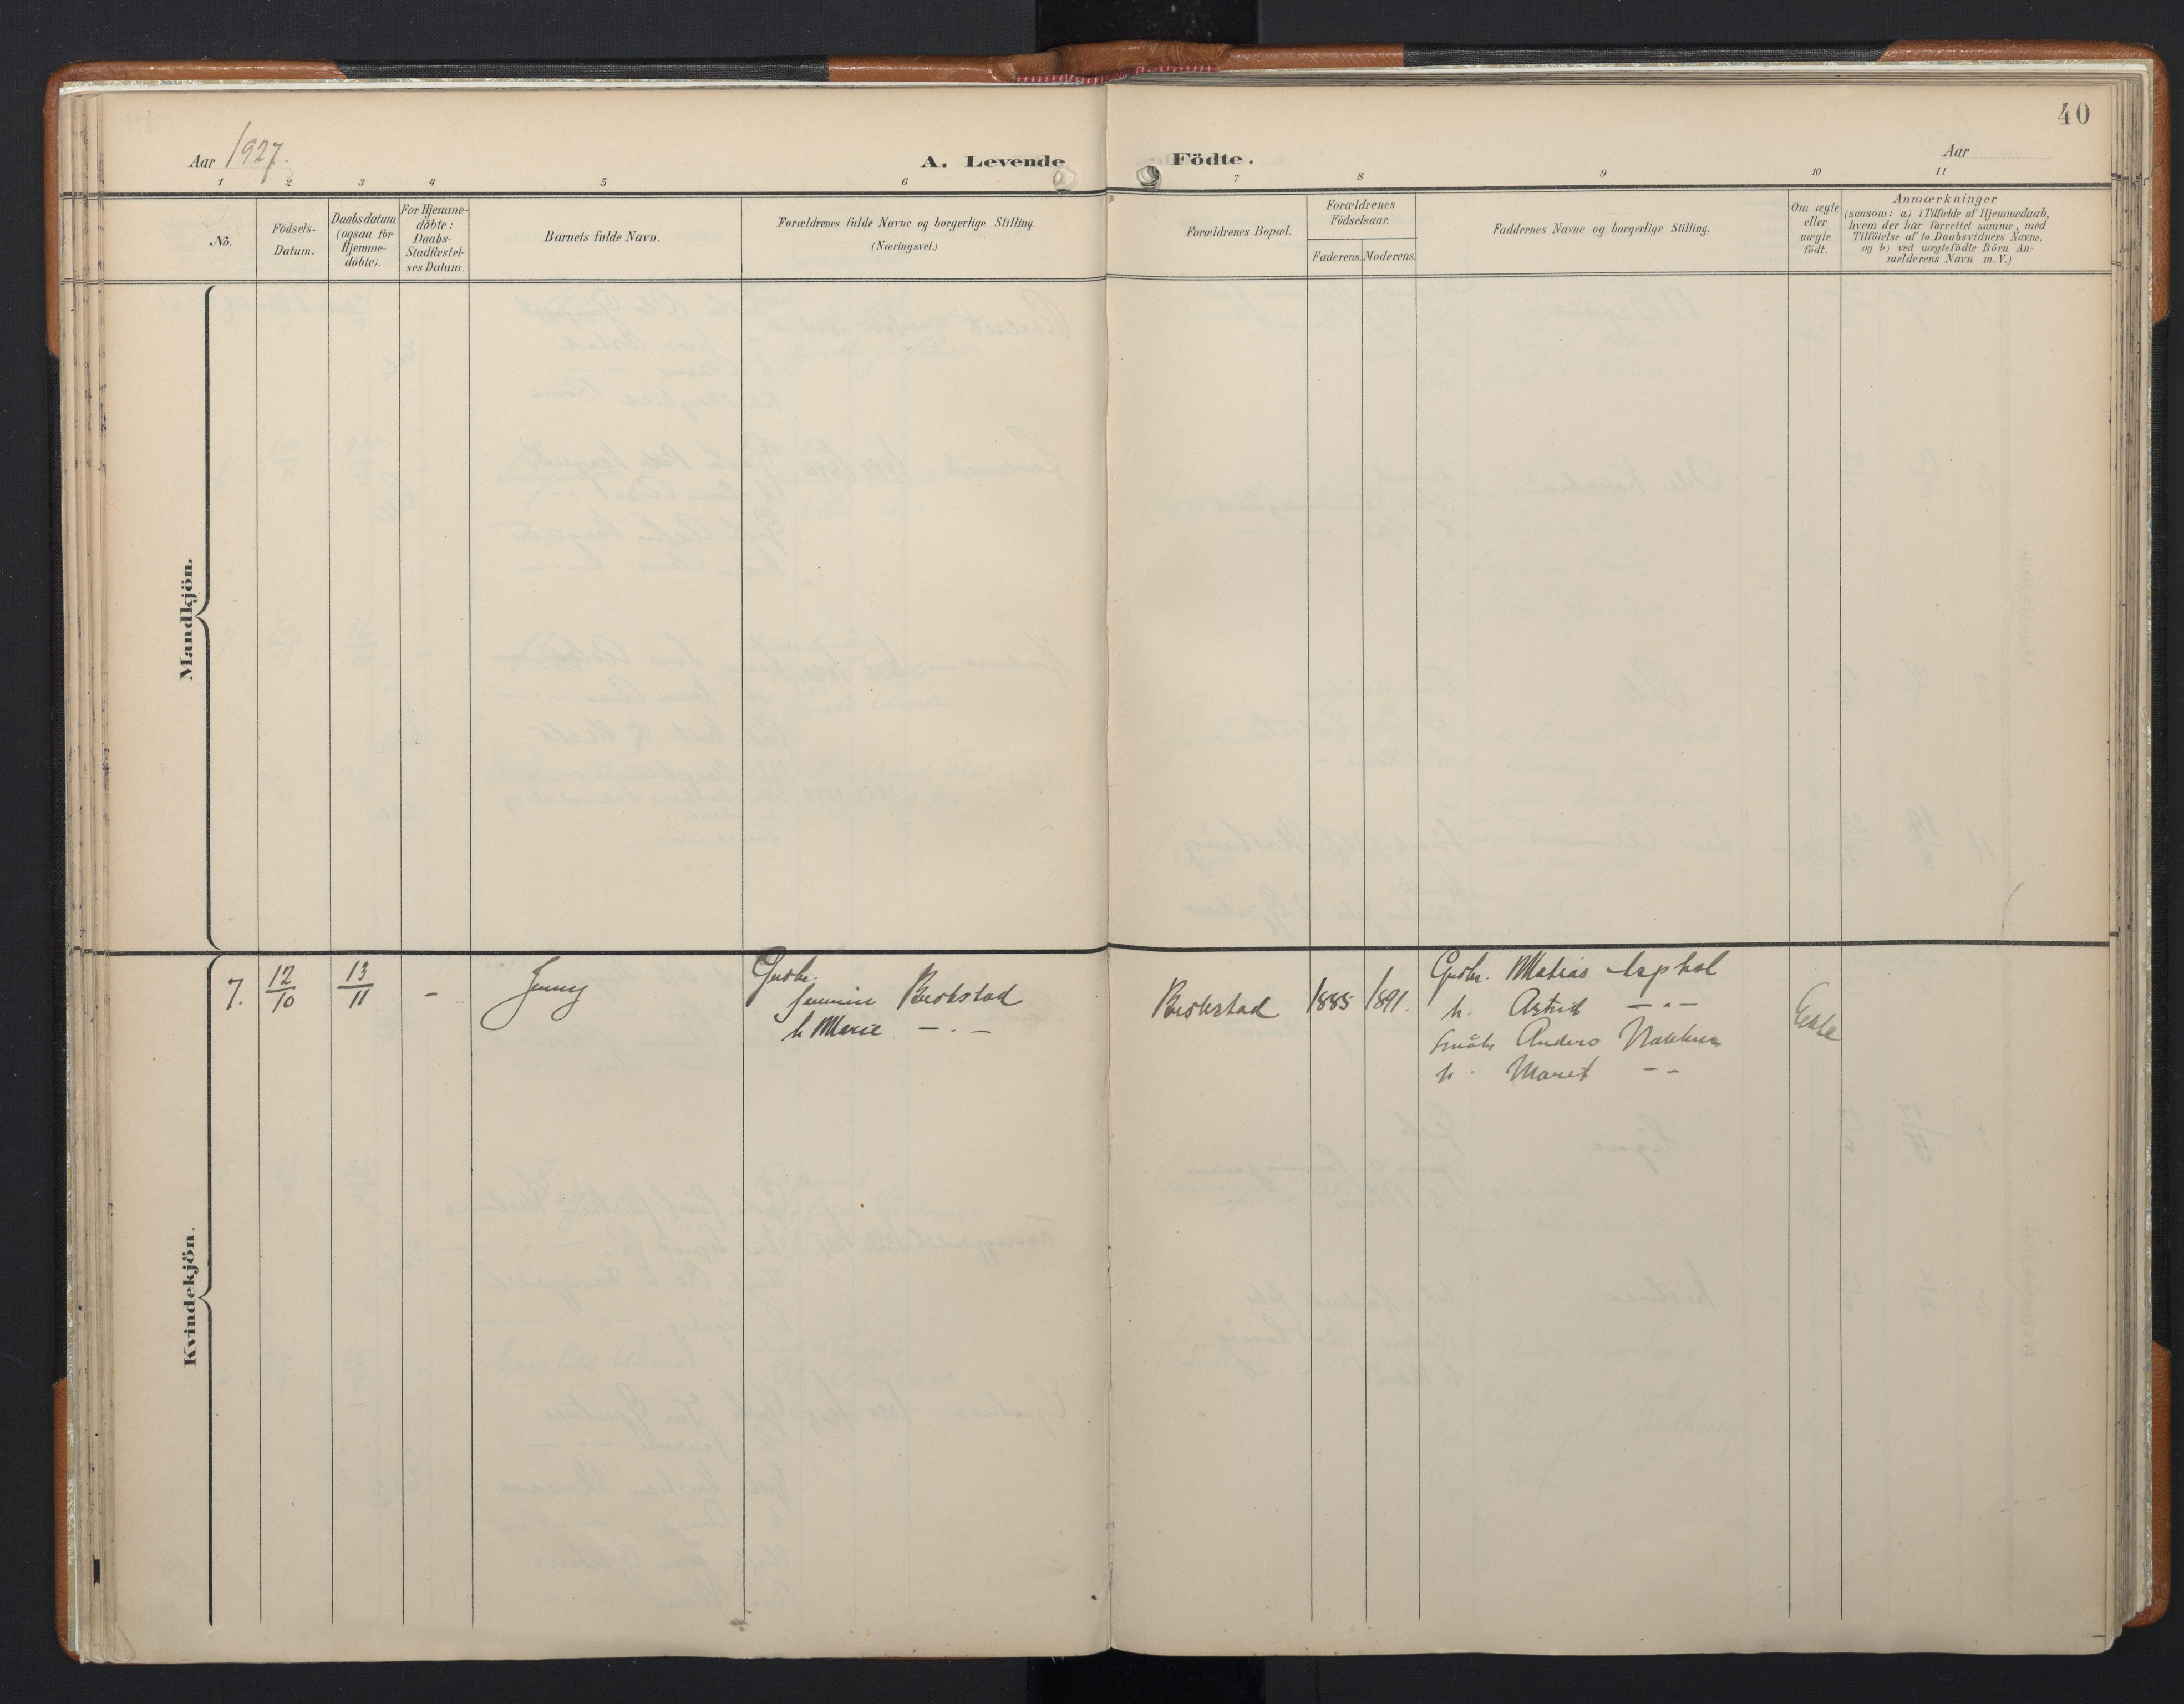 40
Aar 1927.
A. Levende Födte.
Aar
1 2 3 4 5 6 7 8 9 10 11
No.
Födsels-
Datum.
Daabsdatum
(ogsaa for
Hjemme-
döbte).
For Hjemme-
döbte:
Daabs-
Stadfæstel-
ses Datum.
Barnets fulde Navn.
Forældrenes fulde Navne og borgerlige Stilling.
(Næringsvei.)
Forældrenes Bopæl.
Forældrenes
Födselsaar.
Faderens. Moderens.
Faddernes Navne og borgerlige Stilling.
Om ægte
eller
uægte
födt.
Anmærkninger
(saasom: a) i Tilfælde af Hjemmedaab,
hvem der har forrettet samme, med
Tilföielse af to Daabsvidners Navne,
og b) ved uægtefödte Börn An-
melderens Navn m. V.)
Mandkjön.
Kvindekjön.
7. 12/10 13/11 - Jenny
Gudbr.
h Marie - . -
1885 1891.
Matias
h. Astrid - " -
Anders
h. Maret - -
Ekte